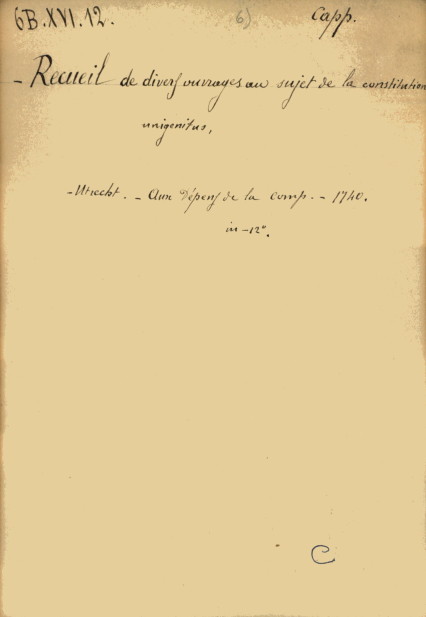 6B.XVI.12. 6) Capp.
- Recueil de divers ouvrages au sujet de la constitution
unigenitus,
- Utrecht. - Aux Dépens de la comp. - 1740.
in-12°.
C